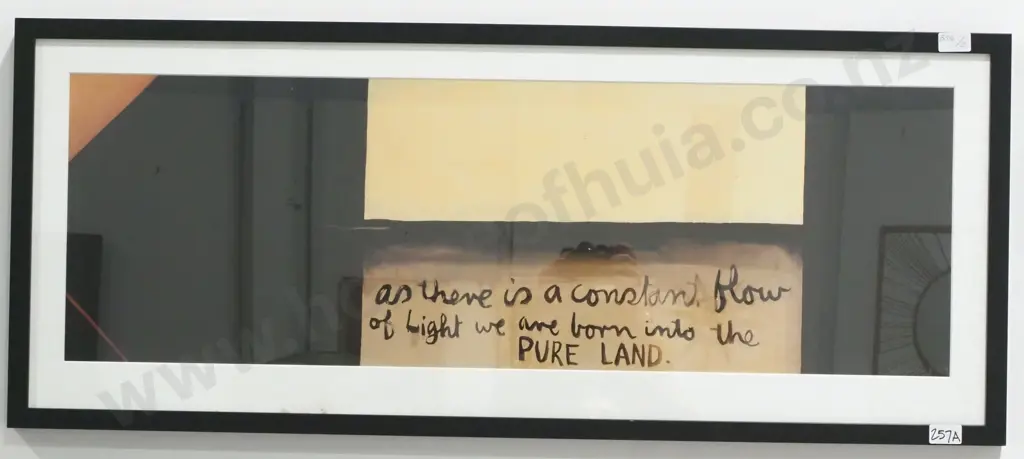 as there is a constant flow
of Light we are born into the
PURE LAND.
257A
www.houseofhuia.co.nz